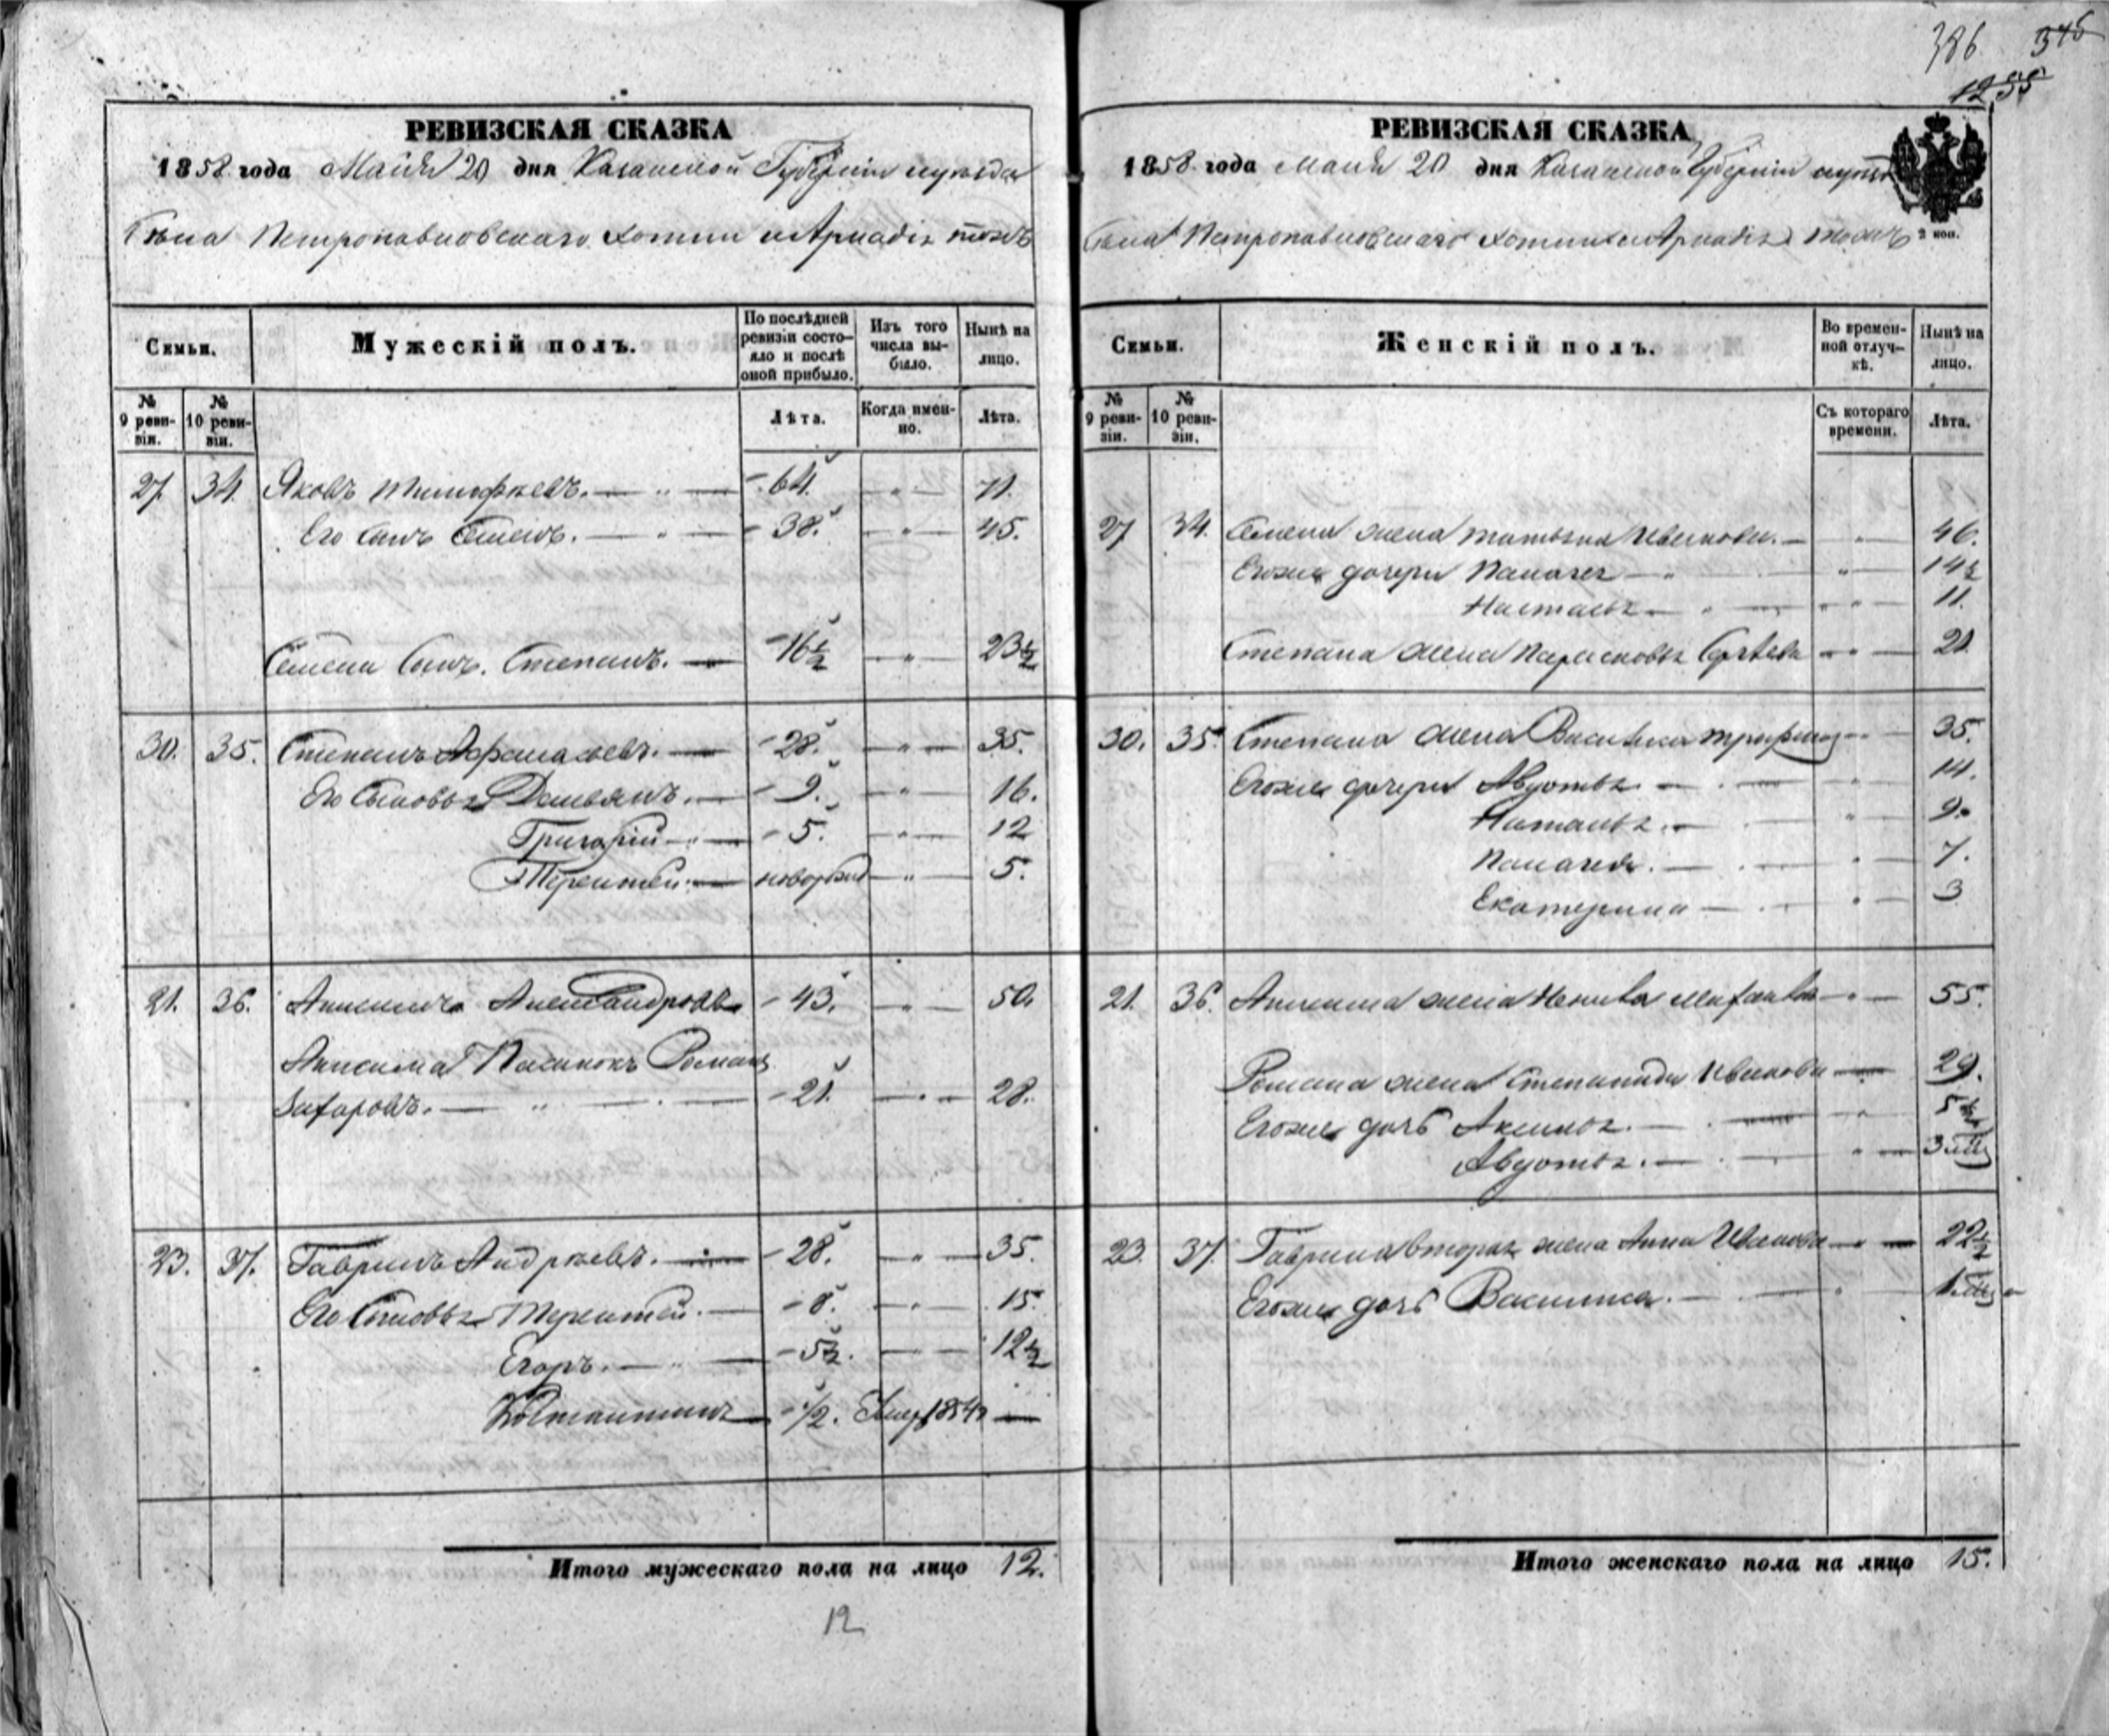 386 346
1255
РЕВИЗСКАЯ СКАЗКА
1858 года Маия 20 дня Казанской Губернии уезда
Села Петропавловскаго
Семьи.
Мужескій полъ.
По послѣдней ревизіи состо-
яло и послѣ оной прибыло.
Изъ того числа вы-
было.
Нынѣ на лицо.
№ 9 реви-
зіи.
№ 10 реви-
зіи.
Лѣта.
Когда имен-
но.
Лѣта.
27. 34. Яковъ Тимофѣевъ. 64. 71.
Его Сынъ Семенъ. 38. 45.
Семена Сынъ. Степанъ. 16½ 23½
30. 35. Степанъ Афанасьевъ. 28. 35.
Его Сыновья Демьянъ. 9. 16.
Григорій 5. 12
Терентей новорожд 5.
21. 36. Анисимъ Александровъ 43. 50.
Анисима Пасынокъ Романъ
Захаровъ. 21. 28.
23. 37. Гаврилъ Андреевъ. 28. 35.
Его Сыновья Терентей. 8. 15.
Егоръ. 5½. 12½
Костантинъ ½. 1854
Итого мужескаго пола на лицо 12.
12
РЕВИЗСКАЯ СКАЗКА
1858 года Маия 20 дня Казанской Губернии
2 коп.
Села Петропавловскаго
Семьи.
Женскій полъ.
Во времен-
ной отлуч-
кѣ.
Нынѣ на лицо.
№ 9 реви-
зіи.
№ 10 реви-
зіи.
Съ котораго времени.
Лѣта.
27 34. Семена жена Татьяна Иванова. 46.
Егоже дочери Палагея 14½
Настасья 11.
Степана жена Парасковья 21
30. 35. Степана жена Василиса 35.
Егоже дочери Авдотья 14.
Наталья. 9.
Палагея. 7.
Екатерина 3
21. 36. Анисима жена 55.
Романа жена Степанида Иванова 29.
Егоже дочь Аксинья. 5½
Авдотья. 3
23. 37. Гаврила вторая жена Анна Иванова 22½
Егоже дочь Василиса. 1
Итого женскаго пола на лицо 15.